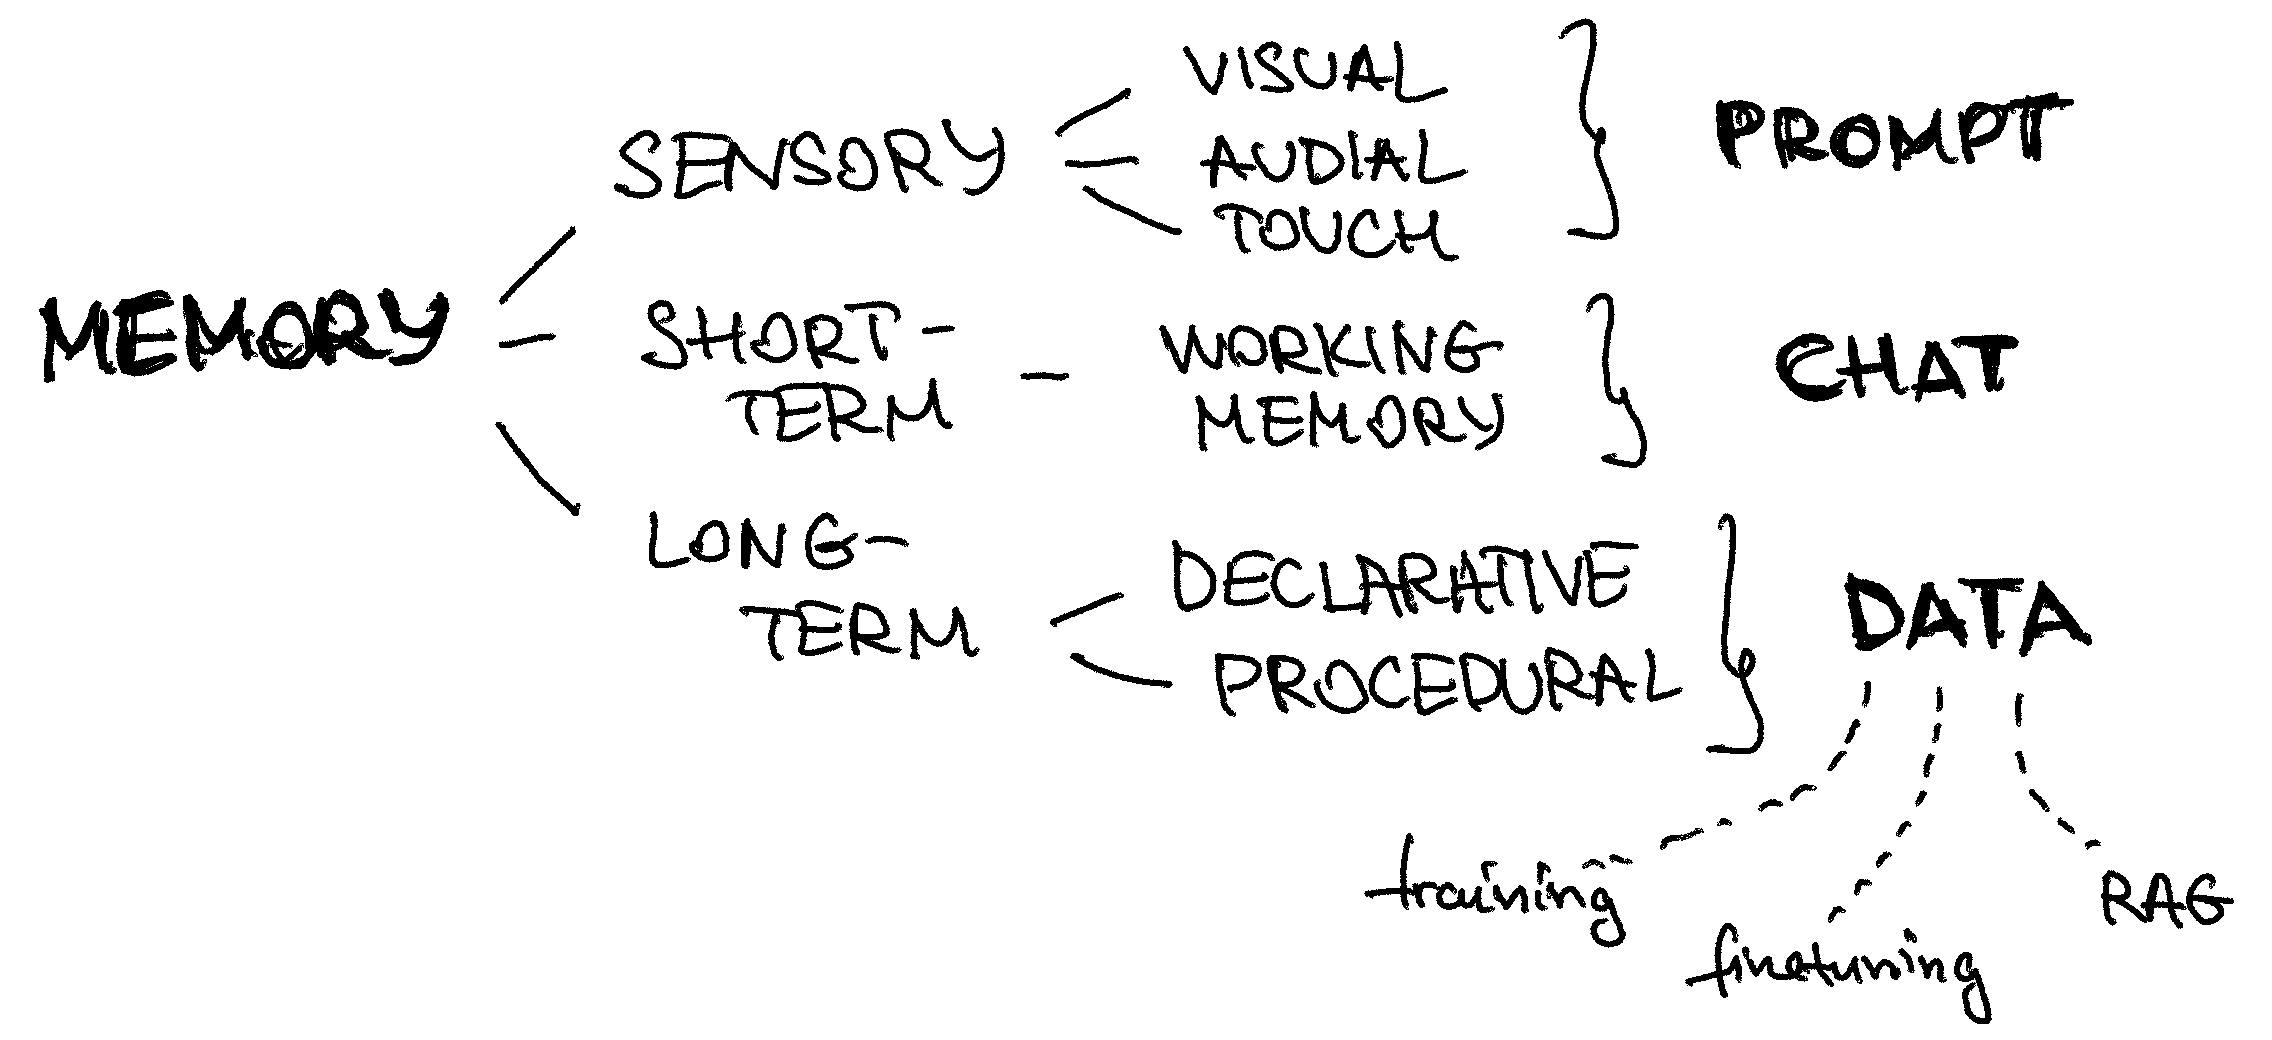 MEMORY
SENSORY
VISUAL
AUDIAL
TOUCH
PROMPT
SHORT-
TERM
WORKING
MEMORY
CHAT
LONG-
TERM
DECLARATIVE
PROCEDURAL
DATA
training
finetuning
RAG